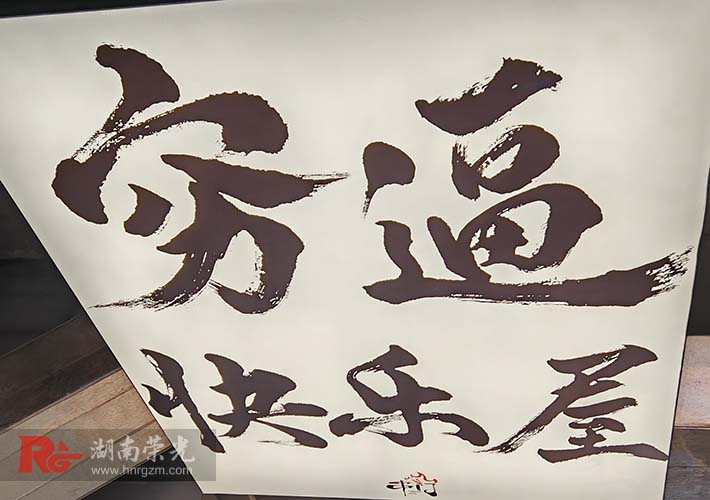 穷逼
快乐屋
RG 湖南荣光
www.hnrgzm.com